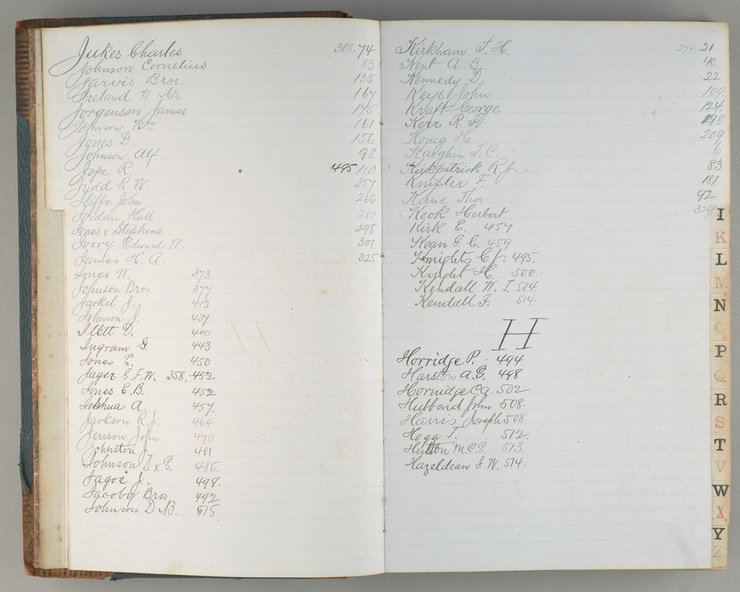 Jukes Charles 308. 74
Johnson Cornelius 83
Jarvis Bros: 135
Ireland W 167
Jorgensen James 175
Johnson Wm 161
Jones D. 156
Johnson Alf 98
Jope R 495 110
Judd R. W. 257
Iliffe John 266
Jordan Hall
Jones & Stephens 298
Ivory Edward W. 301
James H. A. 325
Jones W. 373
Johnson Bros 377
Jackel J. 412
Johnson J. 437
Illett D. 440
Ingram G. 443
Jones E. 450
Jager E F. W. 358, 452
Jones E. B. 452
Joshua A. 457.
Jackson R J. 464
Jenson John 470
Johnston J 481
Johnson J. & G. 486.
Jagoe J. 498.
Jacoby Bros 492
Johnson D. B. 515.
Kirkham T. H. 274. 21
Kent A. G. 40
Kennedy D. 22
Keys John 109
Kraft George 124
Kerr R. H 198
Konig H. 209
Kirkpatrick R J. 83
Knipler F. 181
Kane Thos 92
Keok Herbert 329
Kirk E. 457
Kean G. C. 459
Knights C J. 495.
Knight H. 500.
Kendall W. T. 504
Kendall F. 514
H
Horridge P. 494
Harston A. G. 498
Hornidge C. A. 502
Hubbard John 508.
Harris Joseph 508
Hogg T. 512
Hutton M. C. G. 513
Hazeldean J W. 514
I
K
L
M
N
O
P
Q
R
S
T
V
W
X
Y
Z